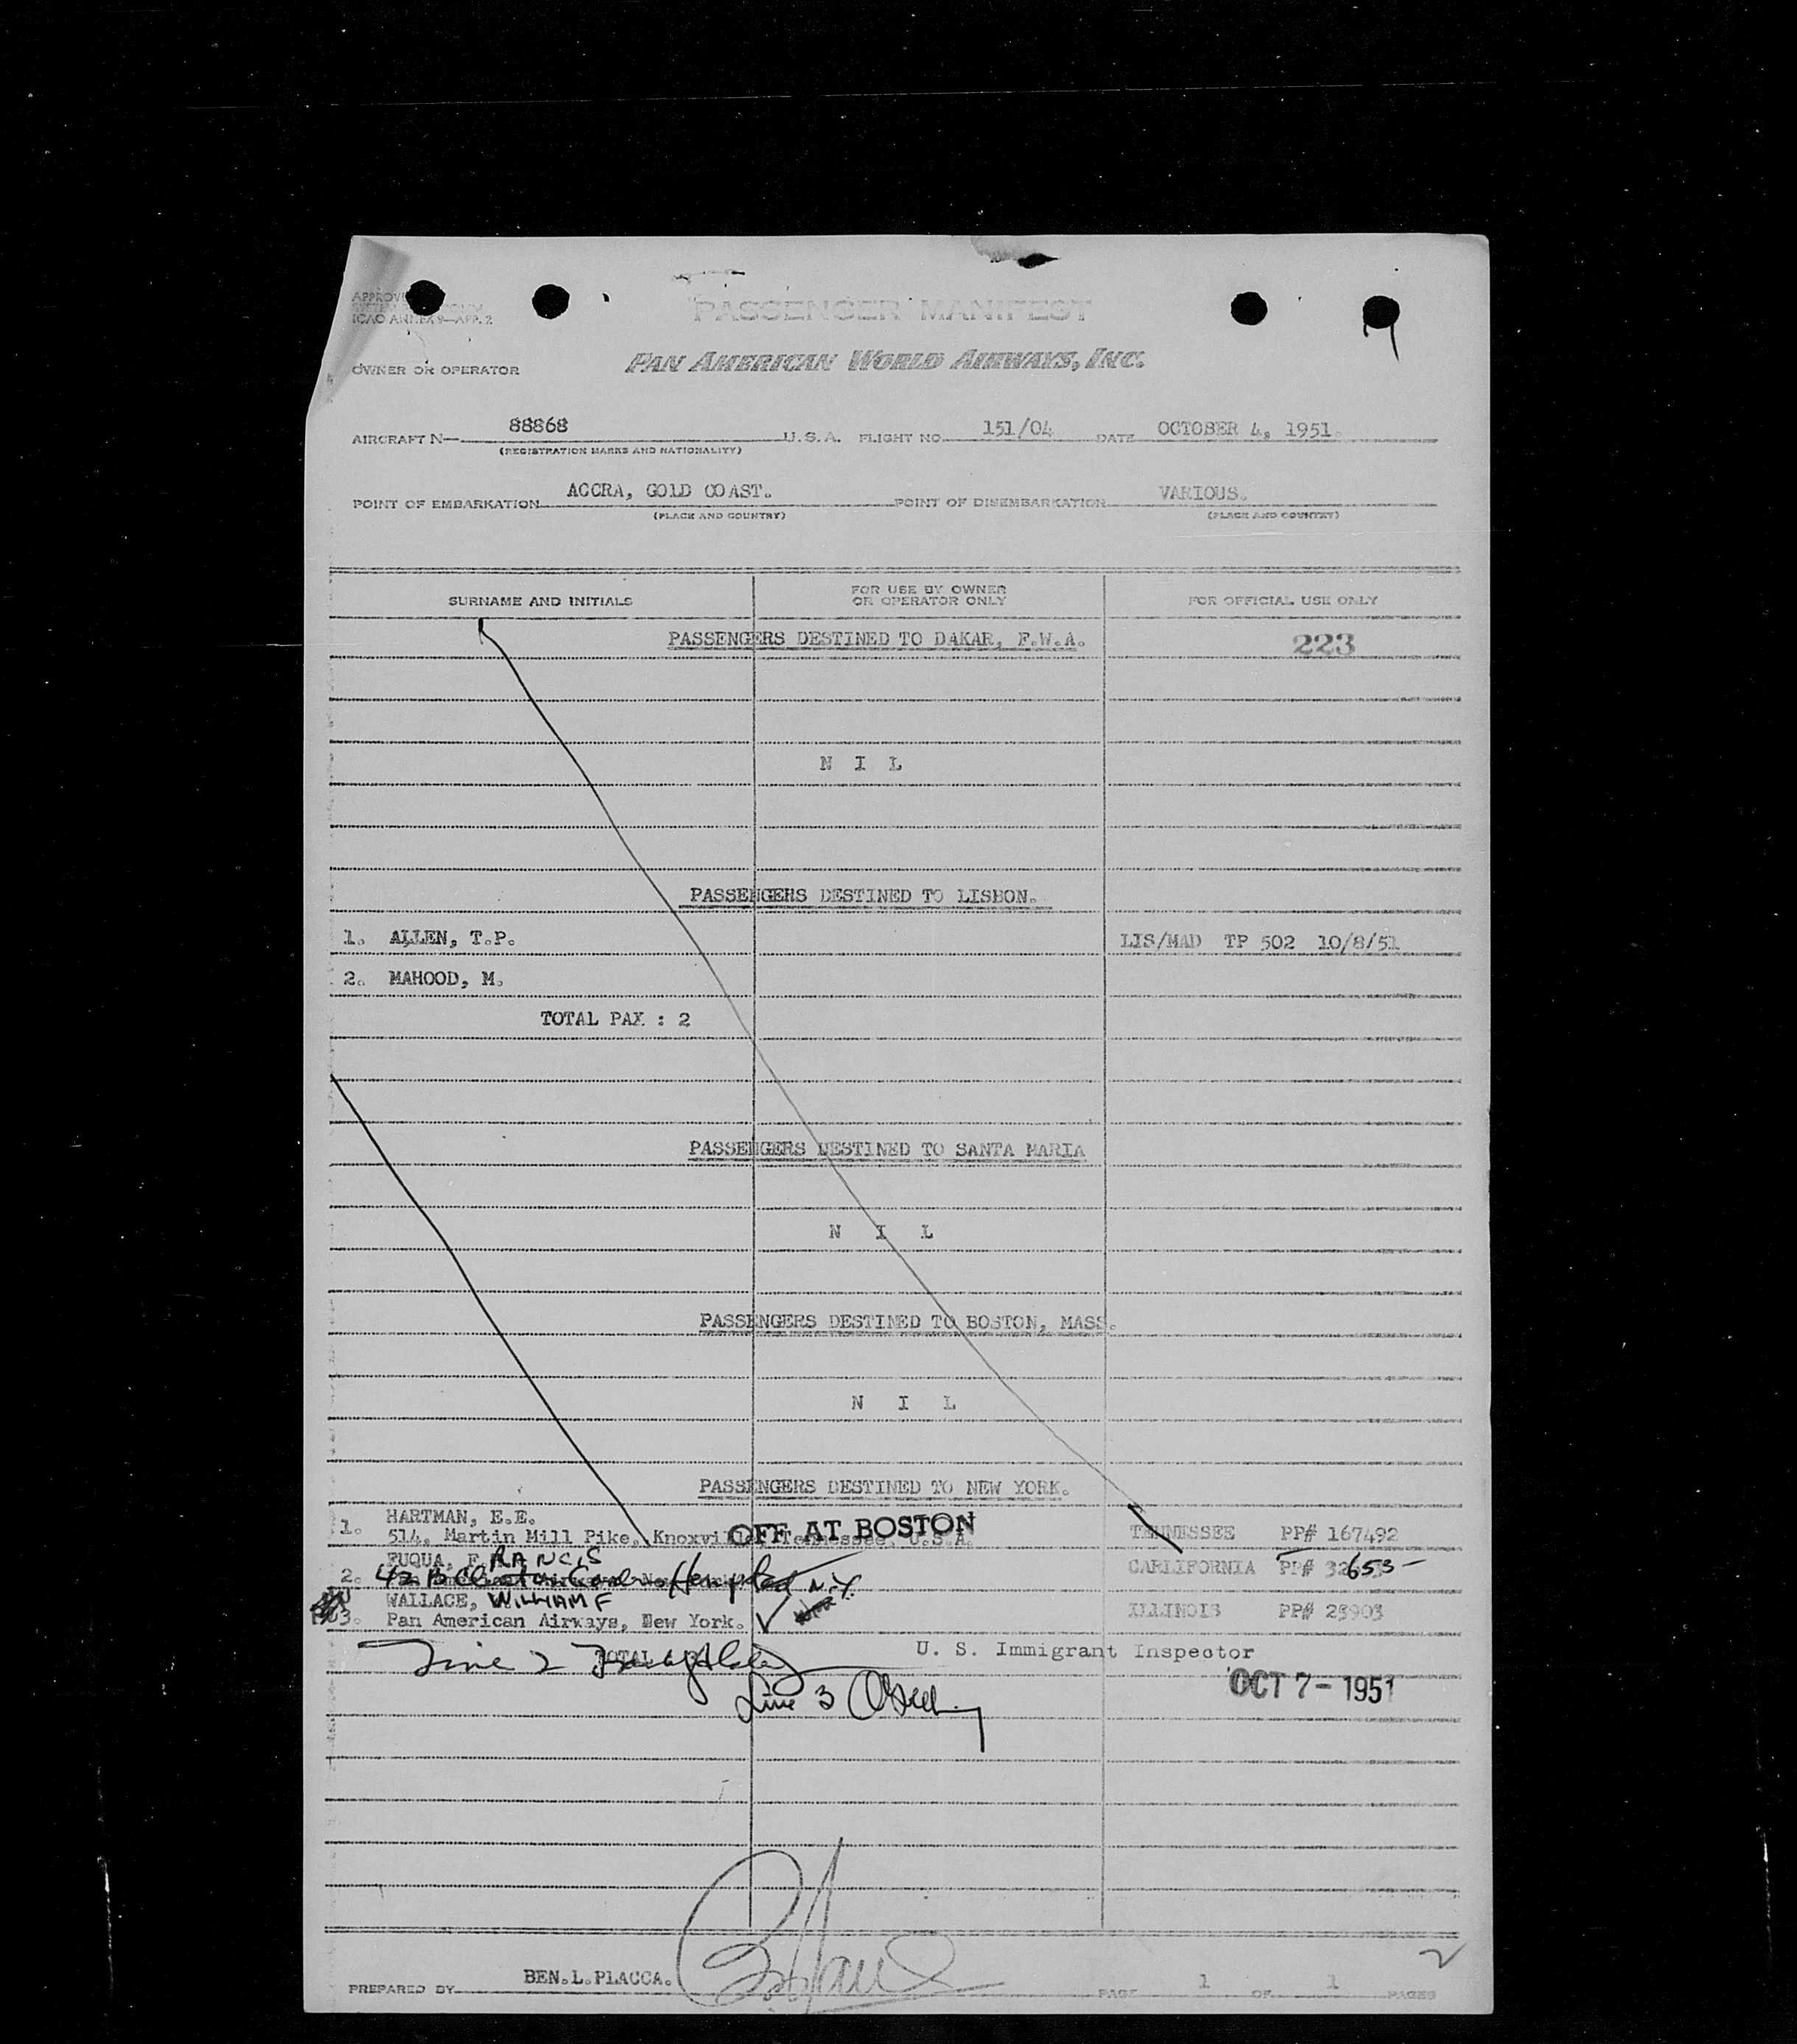 PASSENGER MANIFEST
ICAO ANNEX 9—APP. 2
OWNER OR OPERATOR PAN AMERICAN WORLD AIRWAYS, INC.
AIRCRAFT N— 88868 U.S.A. FLIGHT NO 151/04 DATE OCTOBER 4, 1951.
(REGISTRATION MARKS AND NATIONALITY)
POINT OF EMBARKATION ACCRA, GOLD COAST. POINT OF DISEMBARKATION VARIOUS.
(PLACE AND COUNTRY) (PLACE AND COUNTRY)
SURNAME AND INITIALS FOR USE BY OWNER OR OPERATOR ONLY FOR OFFICIAL USE ONLY
PASSENGERS DESTINED TO DAKAR, F.W.A. 223
N I L
PASSENGERS DESTINED TO LISBON.
1. ALLEN, T.P. LIS/MAD TP 502 10/8/51
2. MAHOOD, M.
TOTAL PAX : 2
PASSENGERS DESTINED TO SANTA MARIA
N I L
PASSENGERS DESTINED TO BOSTON, MASS.
N I L
PASSENGERS DESTINED TO NEW YORK.
HARTMAN, E.E.
1. 514, Martin Mill Pike, Knoxville, Tennessee, U.S.A. TENNESSEE PP# 167492
OFF AT BOSTON
FUQUA, FRANCIS
2. 42 B N.Y. CARLIFORNIA PP# 32653 –
WALLACE, WILLIAM F
3. Pan American Airways, New York. ILLINOIS PP# 23903
Line 2 TOTAL U. S. Immigrant Inspector
Line 3 OCT 7 - 1951
PREPARED BY BEN.L.PLACCA. PAGE 1 OF 1 PAGES
2